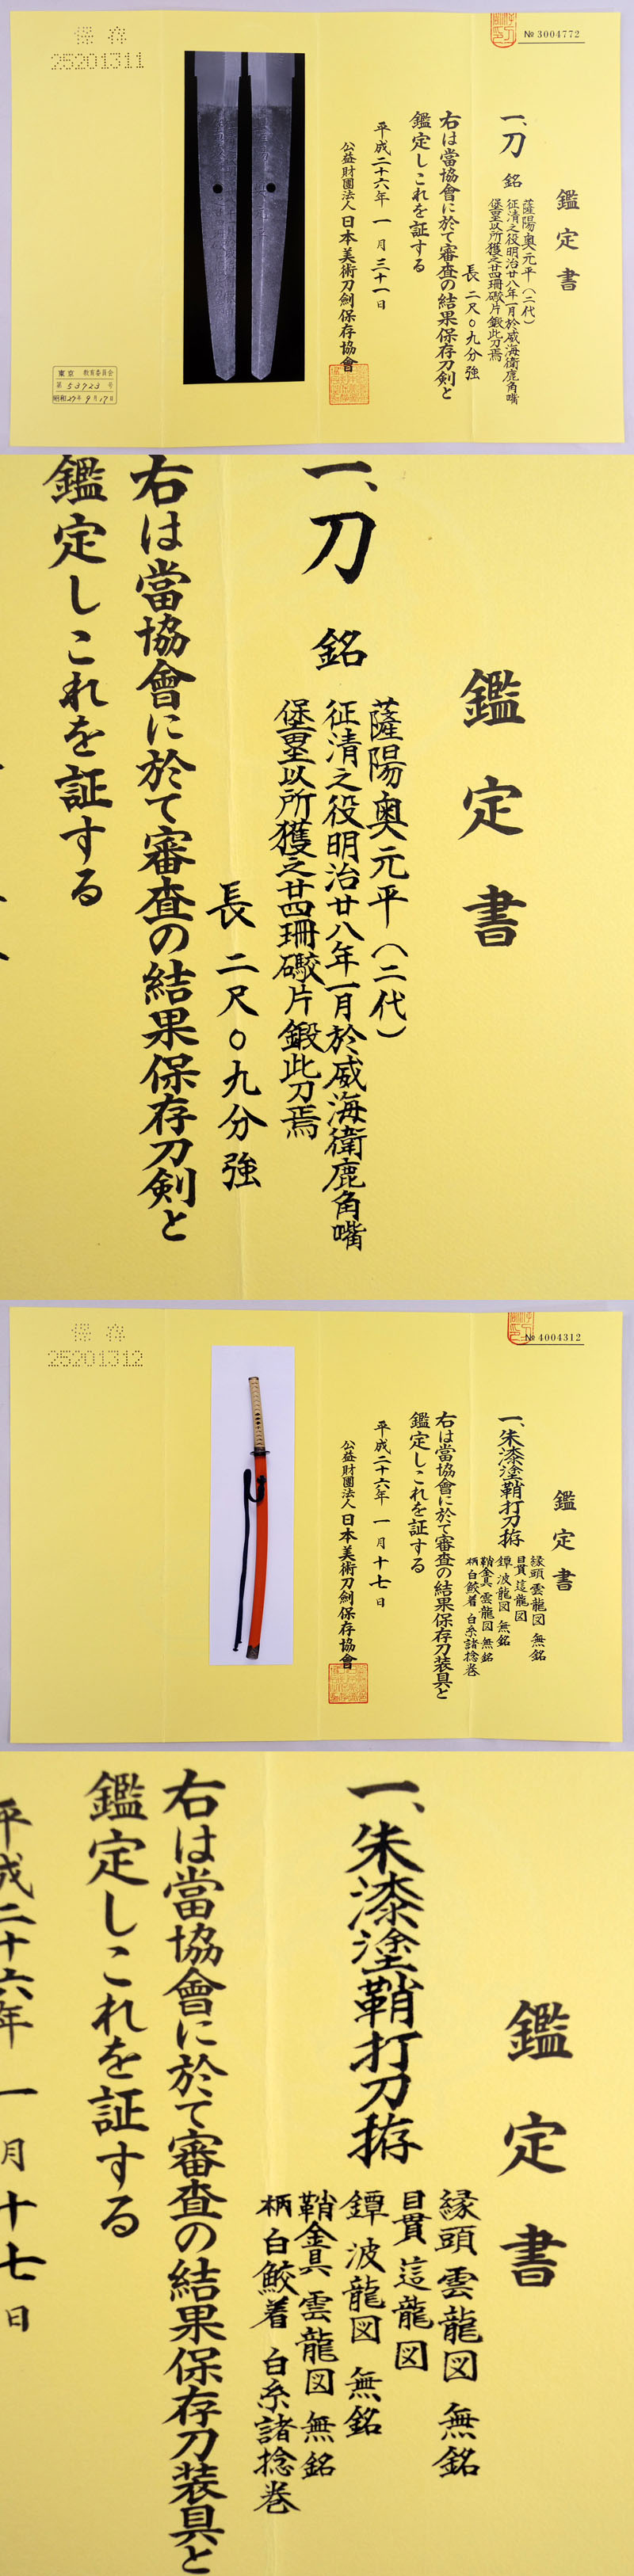 № 3004772
鑑定書
一、刀 銘
薩陽奥元平(二代)
征清之役明治廿八年一月於威海衛鹿角嘴
堡塁以所獲之廿四珊礮片鍛此刀焉
長 二尺〇九分強
右は當協會に於て審査の結果保存刀剣と
鑑定しこれを証する
平成二十六年 一月 三十一日
公益財團法人 日本美術刀劍保存協會
保存
25201311
東京 教育委員会
第 53723 号
昭和27年9月17日
鑑定書
一、刀 銘
薩陽奥元平(二代)
征清之役明治廿八年一月於威海衛鹿角嘴
堡塁以所獲之廿四珊礮片鍛此刀焉
長 二尺〇九分強
右は當協會に於て審査の結果保存刀剣と
鑑定しこれを証する
№ 4004312
鑑定書
一、朱漆塗鞘打刀拵
縁頭 雲龍図 無銘
目貫 這龍図
鐔 波龍図 無銘
鞘金具 雲龍図 無銘
柄 白鮫着 白糸諸捻巻
右は當協會に於て審査の結果保存刀装具と
鑑定しこれを証する
平成二十六年 一月 十七日
公益財團法人 日本美術刀劍保存協會
保存
25201312
鑑定書
一、朱漆塗鞘打刀拵
縁頭 雲龍図 無銘
目貫 這龍図
鐔 波龍図 無銘
鞘金具 雲龍図 無銘
柄 白鮫着 白糸諸捻巻
右は當協會に於て審査の結果保存刀装具と
鑑定しこれを証する
平成二十六年 一月 十七日